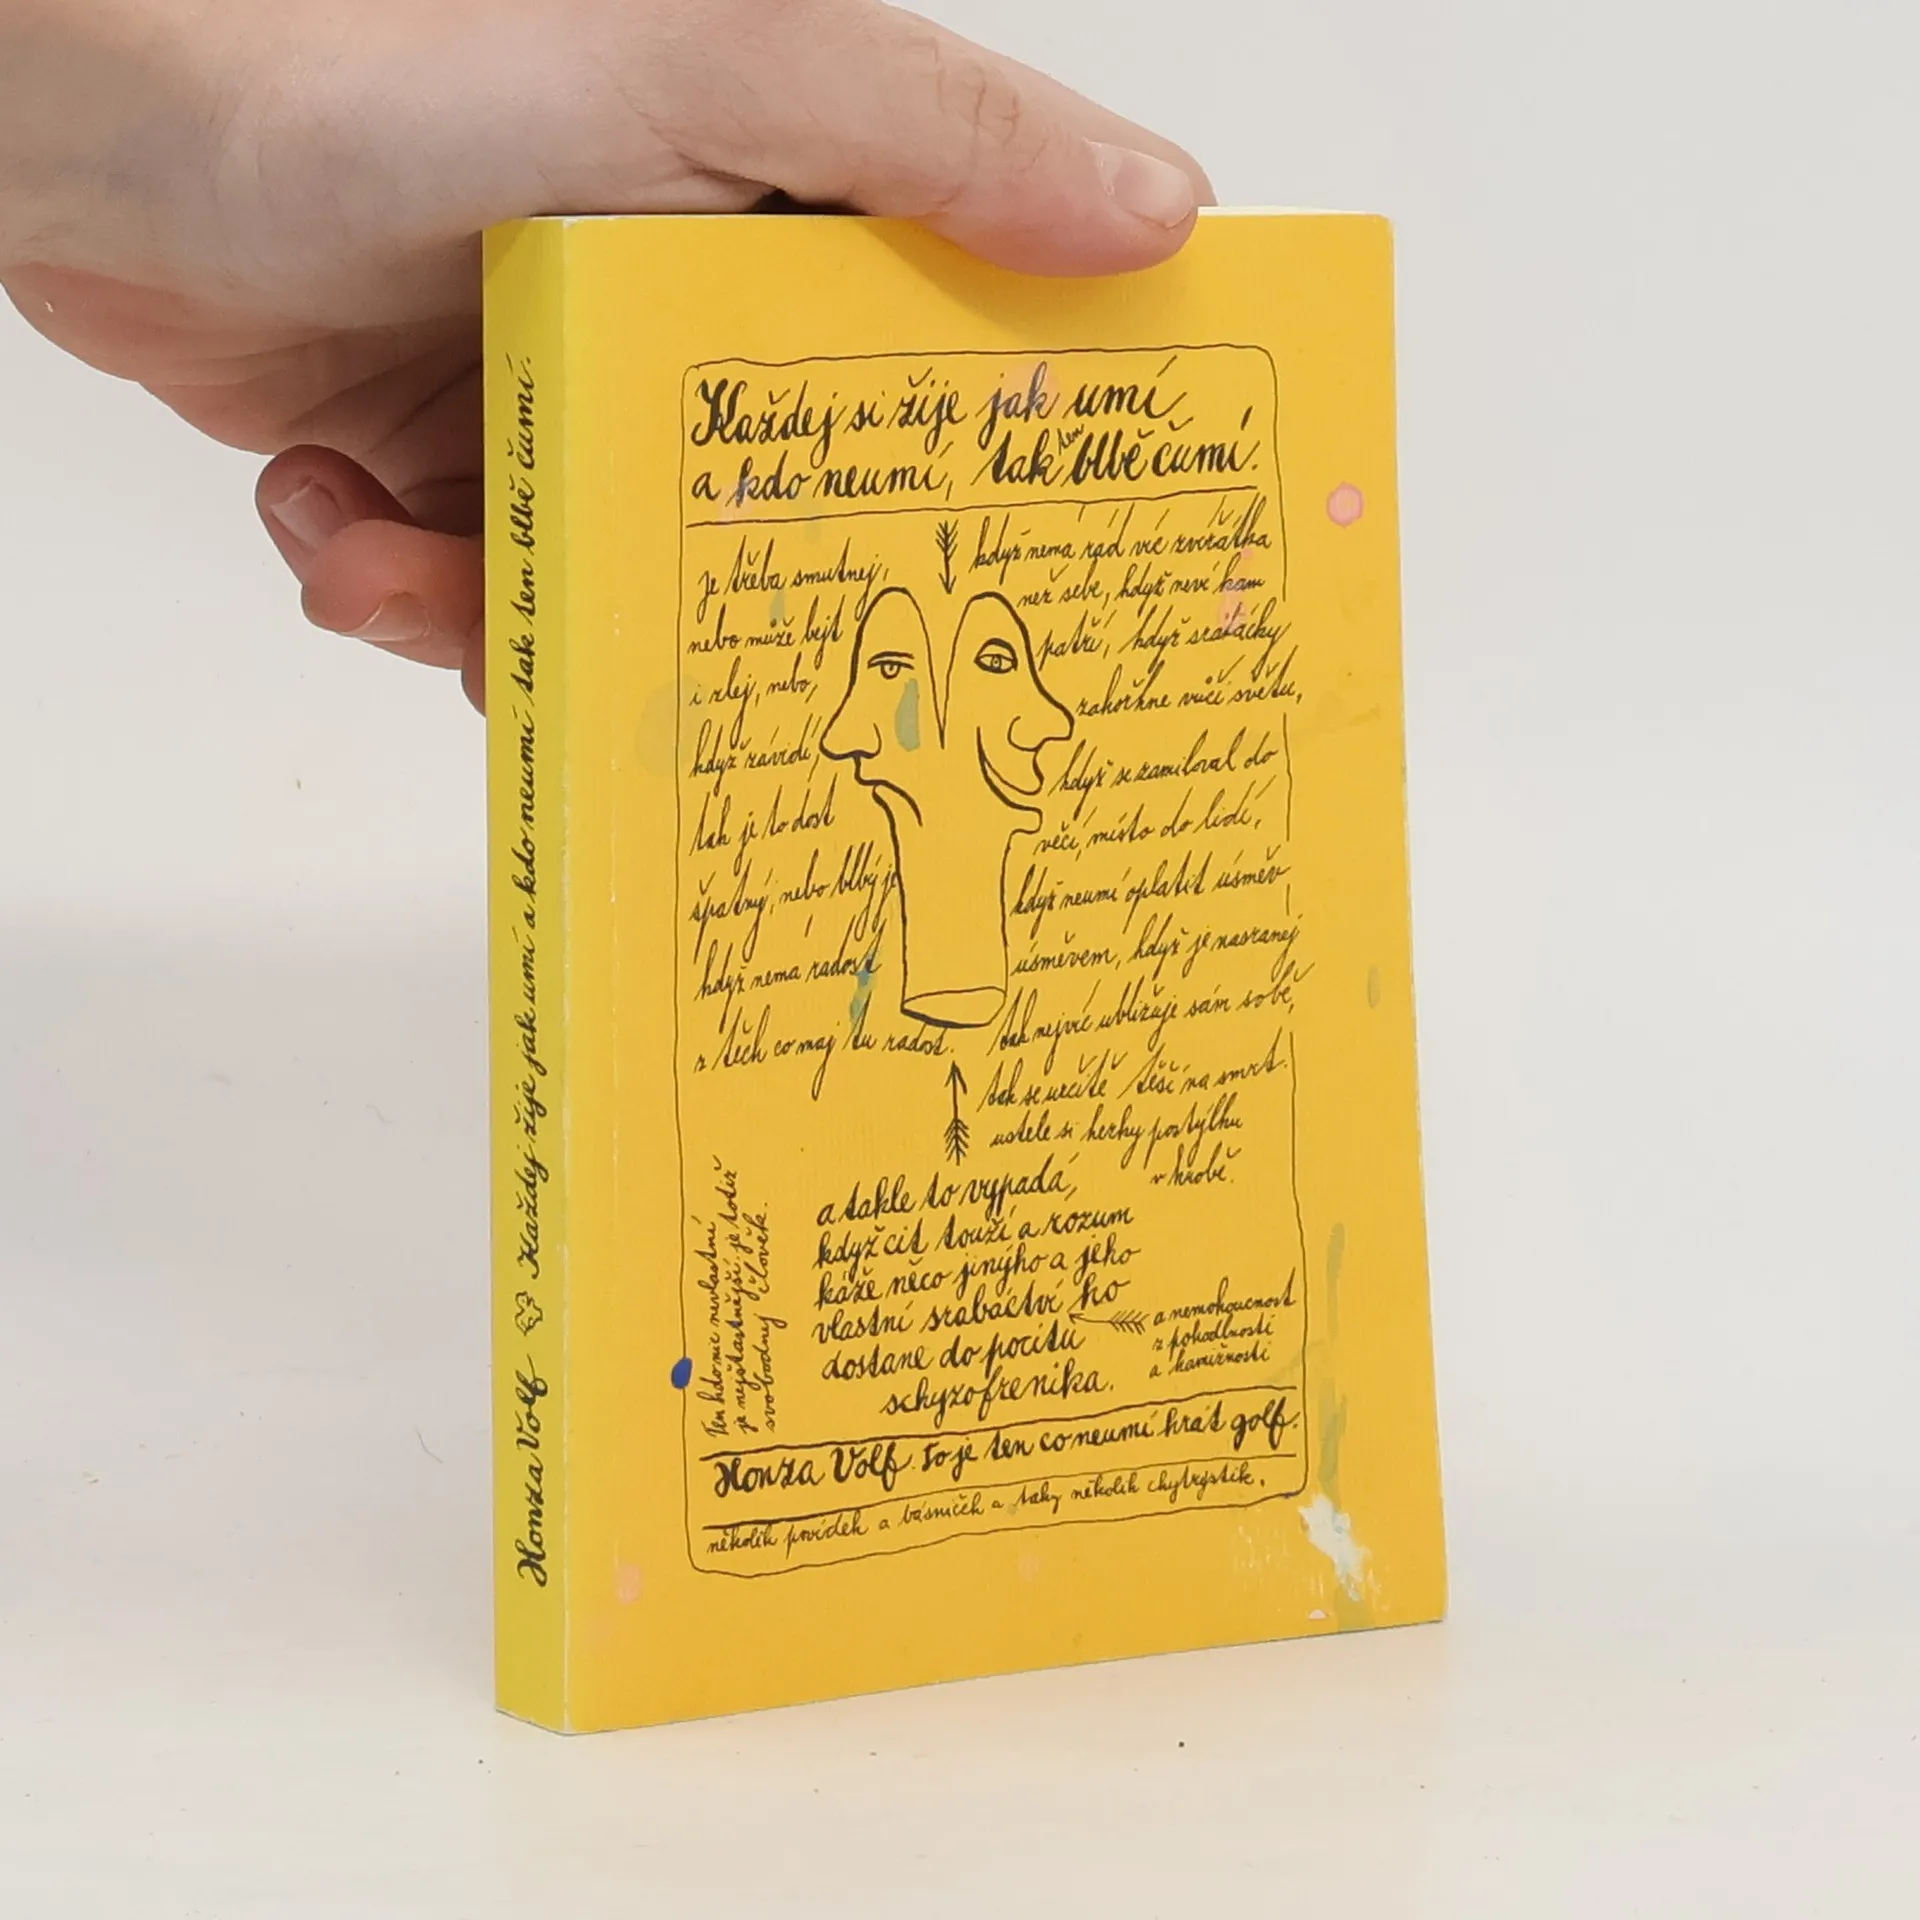 Každej si žije jak umí
a kdo neumí, tak ten blbě čumí.
je třeba smutnej,
nebo může bejt
i zlej, nebo,
když závidí,
tak je to dost
špatný, nebo blbý je
když nemá radost
z těch co maj tu radost.
když nemá rád víc zvířátka
než sebe, když neví kam
patří, když sraťácky
zahořkne vůči světu,
když se zamiloval do
věcí, místo do lidí,
když neumí oplatit úsměv
úsměvem, když je nasranej
tak nejvíc ubližuje sám sobě,
tak se určitě těší na smrt.
ustele si hezky postýlku
v hrobě.
a takle to vypadá,
když cit touží a rozum
káže něco jinýho a jeho
vlastní srabáctví ho
dostane do pocitu
schyzofrenika.
a nemohoucnost
z pohodlnosti
a hamižnosti
Ten kdo nic nevlastní
je nejšťastnější, je totiž
svobodnej člověk.
Honza Volf. To je ten co neumí hrát golf.
několik povídek a básniček a taky několik chytrystik.
Honza Volf Každej si žije jak umí a kdo neumí tak ten blbě čumí.